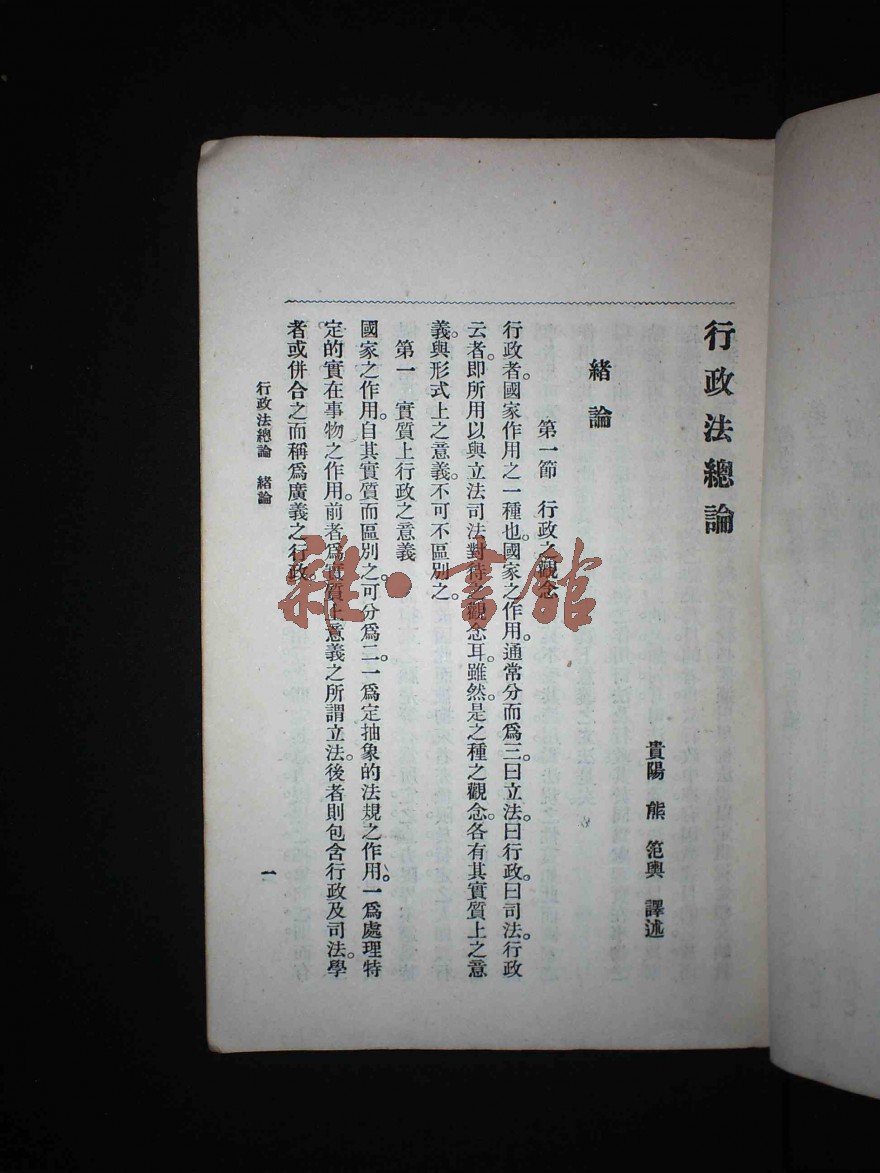 行政法總論
貴陽 熊 範輿 譯述
緒論
第一節 行政之觀念
行政者。國家作用之一種也。國家之作用。通常分而爲三。曰立法。曰行政。曰司法。行政
云者。即所用以與立法司法對待之觀念耳。雖然。是之種之觀念。各有其實質上之意
義。與形式上之意義。不可不區別之。
第一 實質上行政之意義
國家之作用。自其實質而區別之。可分爲二。一爲定抽象的法規之作用。一爲處理特
定的實在事物之作用。前者爲實質上意義之所謂立法。後者則包含行政及司法。學
者或併合之而稱爲廣義之行政。
行政法總論 緒論
一
雜·書館